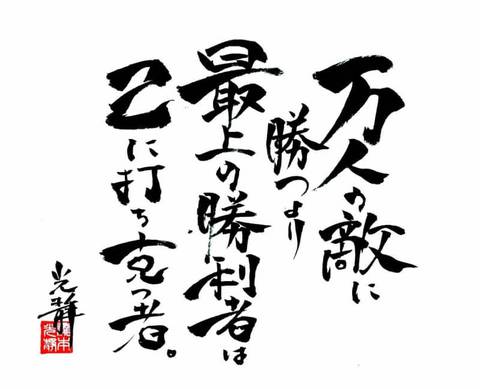 万人の敵に
勝つより
最上の勝利者は
己に打ち克つ者。